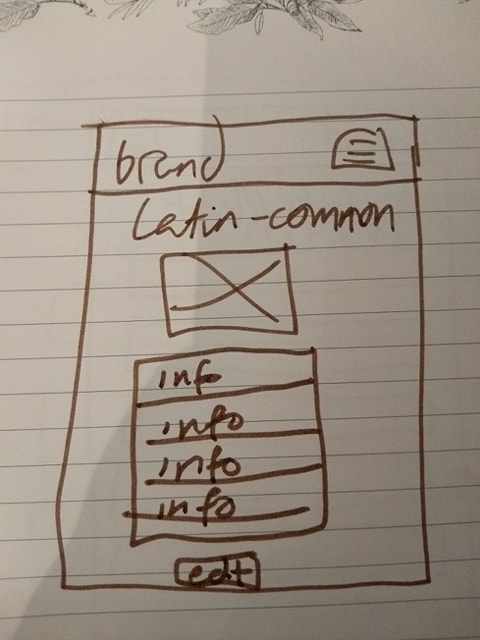 brand
Latin-common
info
info
info
info
edit